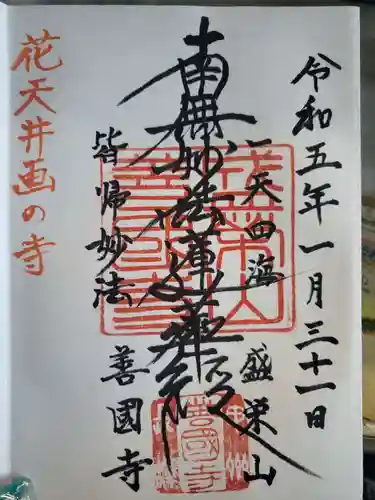 令和五年一月三十一日
一天四海
盛栄山
南無妙法蓮華経
皆帰妙法
善國寺
花天井画の寺
善國寺